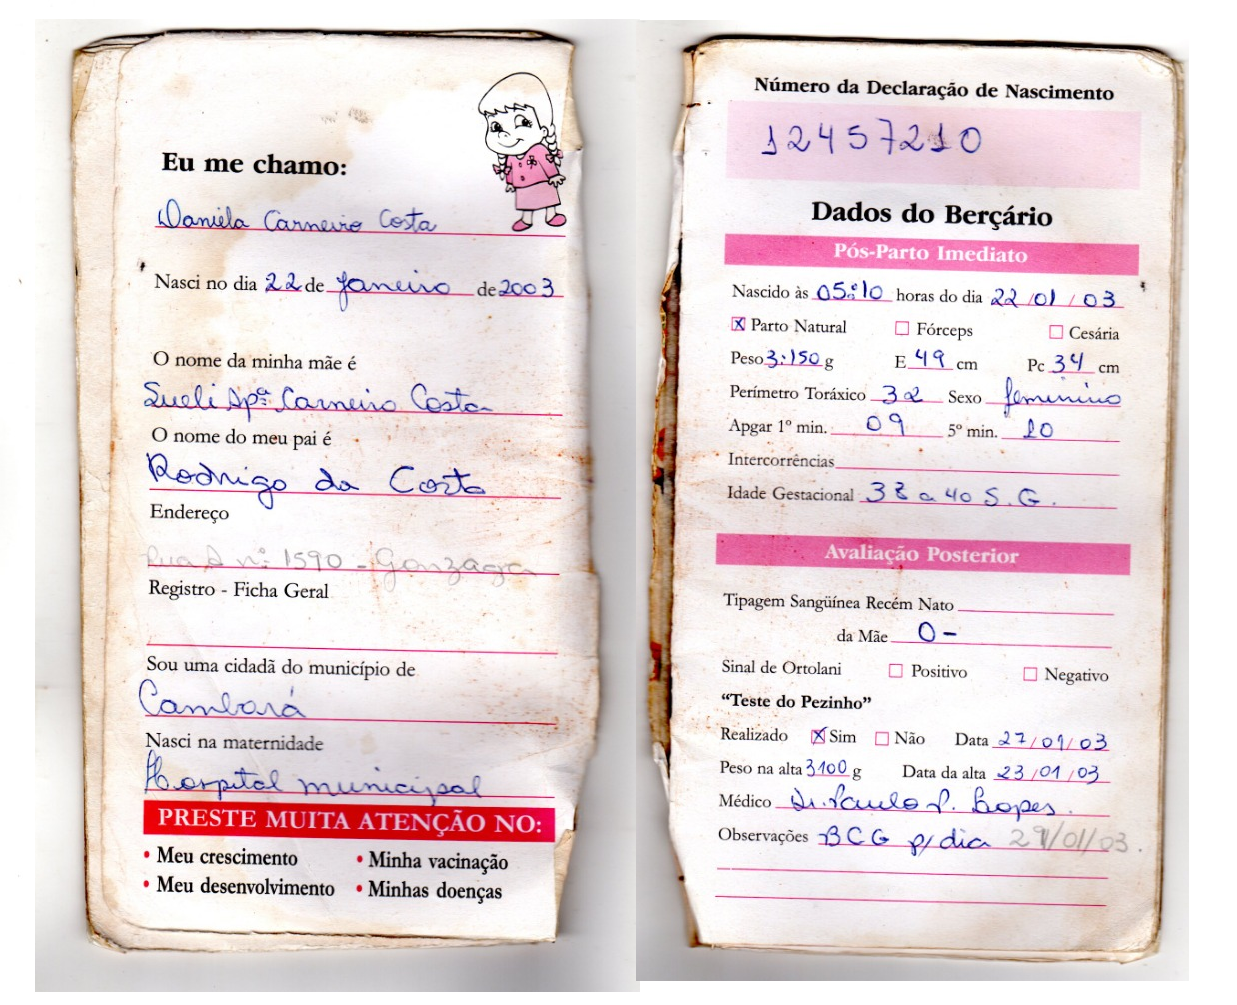 Eu me chamo:
Daniela Carneiro Costa
Nasci no dia 22 de Janeiro de 2003
O nome da minha mãe é
Sueli Apª Carneiro Costa
O nome do meu pai é
Rodrigo da Costa
Endereço
Rua A nº 1590 - Gonzaga
Registro - Ficha Geral
Sou uma cidadã do município de
Cambará
Nasci na maternidade
Hospital municipal
PRESTE MUITA ATENÇÃO NO:
• Meu crescimento • Minha vacinação
• Meu desenvolvimento • Minhas doenças
Número da Declaração de Nascimento
12457210
Dados do Berçário
Pós-Parto Imediato
Nascido às 05:10 horas do dia 22/01/03
☒ Parto Natural ☐ Fórceps ☐ Cesária
Peso 3.150 g E 49 cm Pc 34 cm
Perímetro Toráxico 32 Sexo feminino
Apgar 1º min. 09 5º min. 10
Intercorrências
Idade Gestacional 38 a 40 S.G.
Avaliação Posterior
Tipagem Sangüínea Recém Nato
da Mãe O-
Sinal de Ortolani ☐ Positivo ☐ Negativo
“Teste do Pezinho”
Realizado ☒ Sim ☐ Não Data 27/01/03
Peso na alta 3100 g Data da alta 23/01/03
Médico Dr. Paulo P. Lopes.
Observações BCG p/ dia 29/01/03.